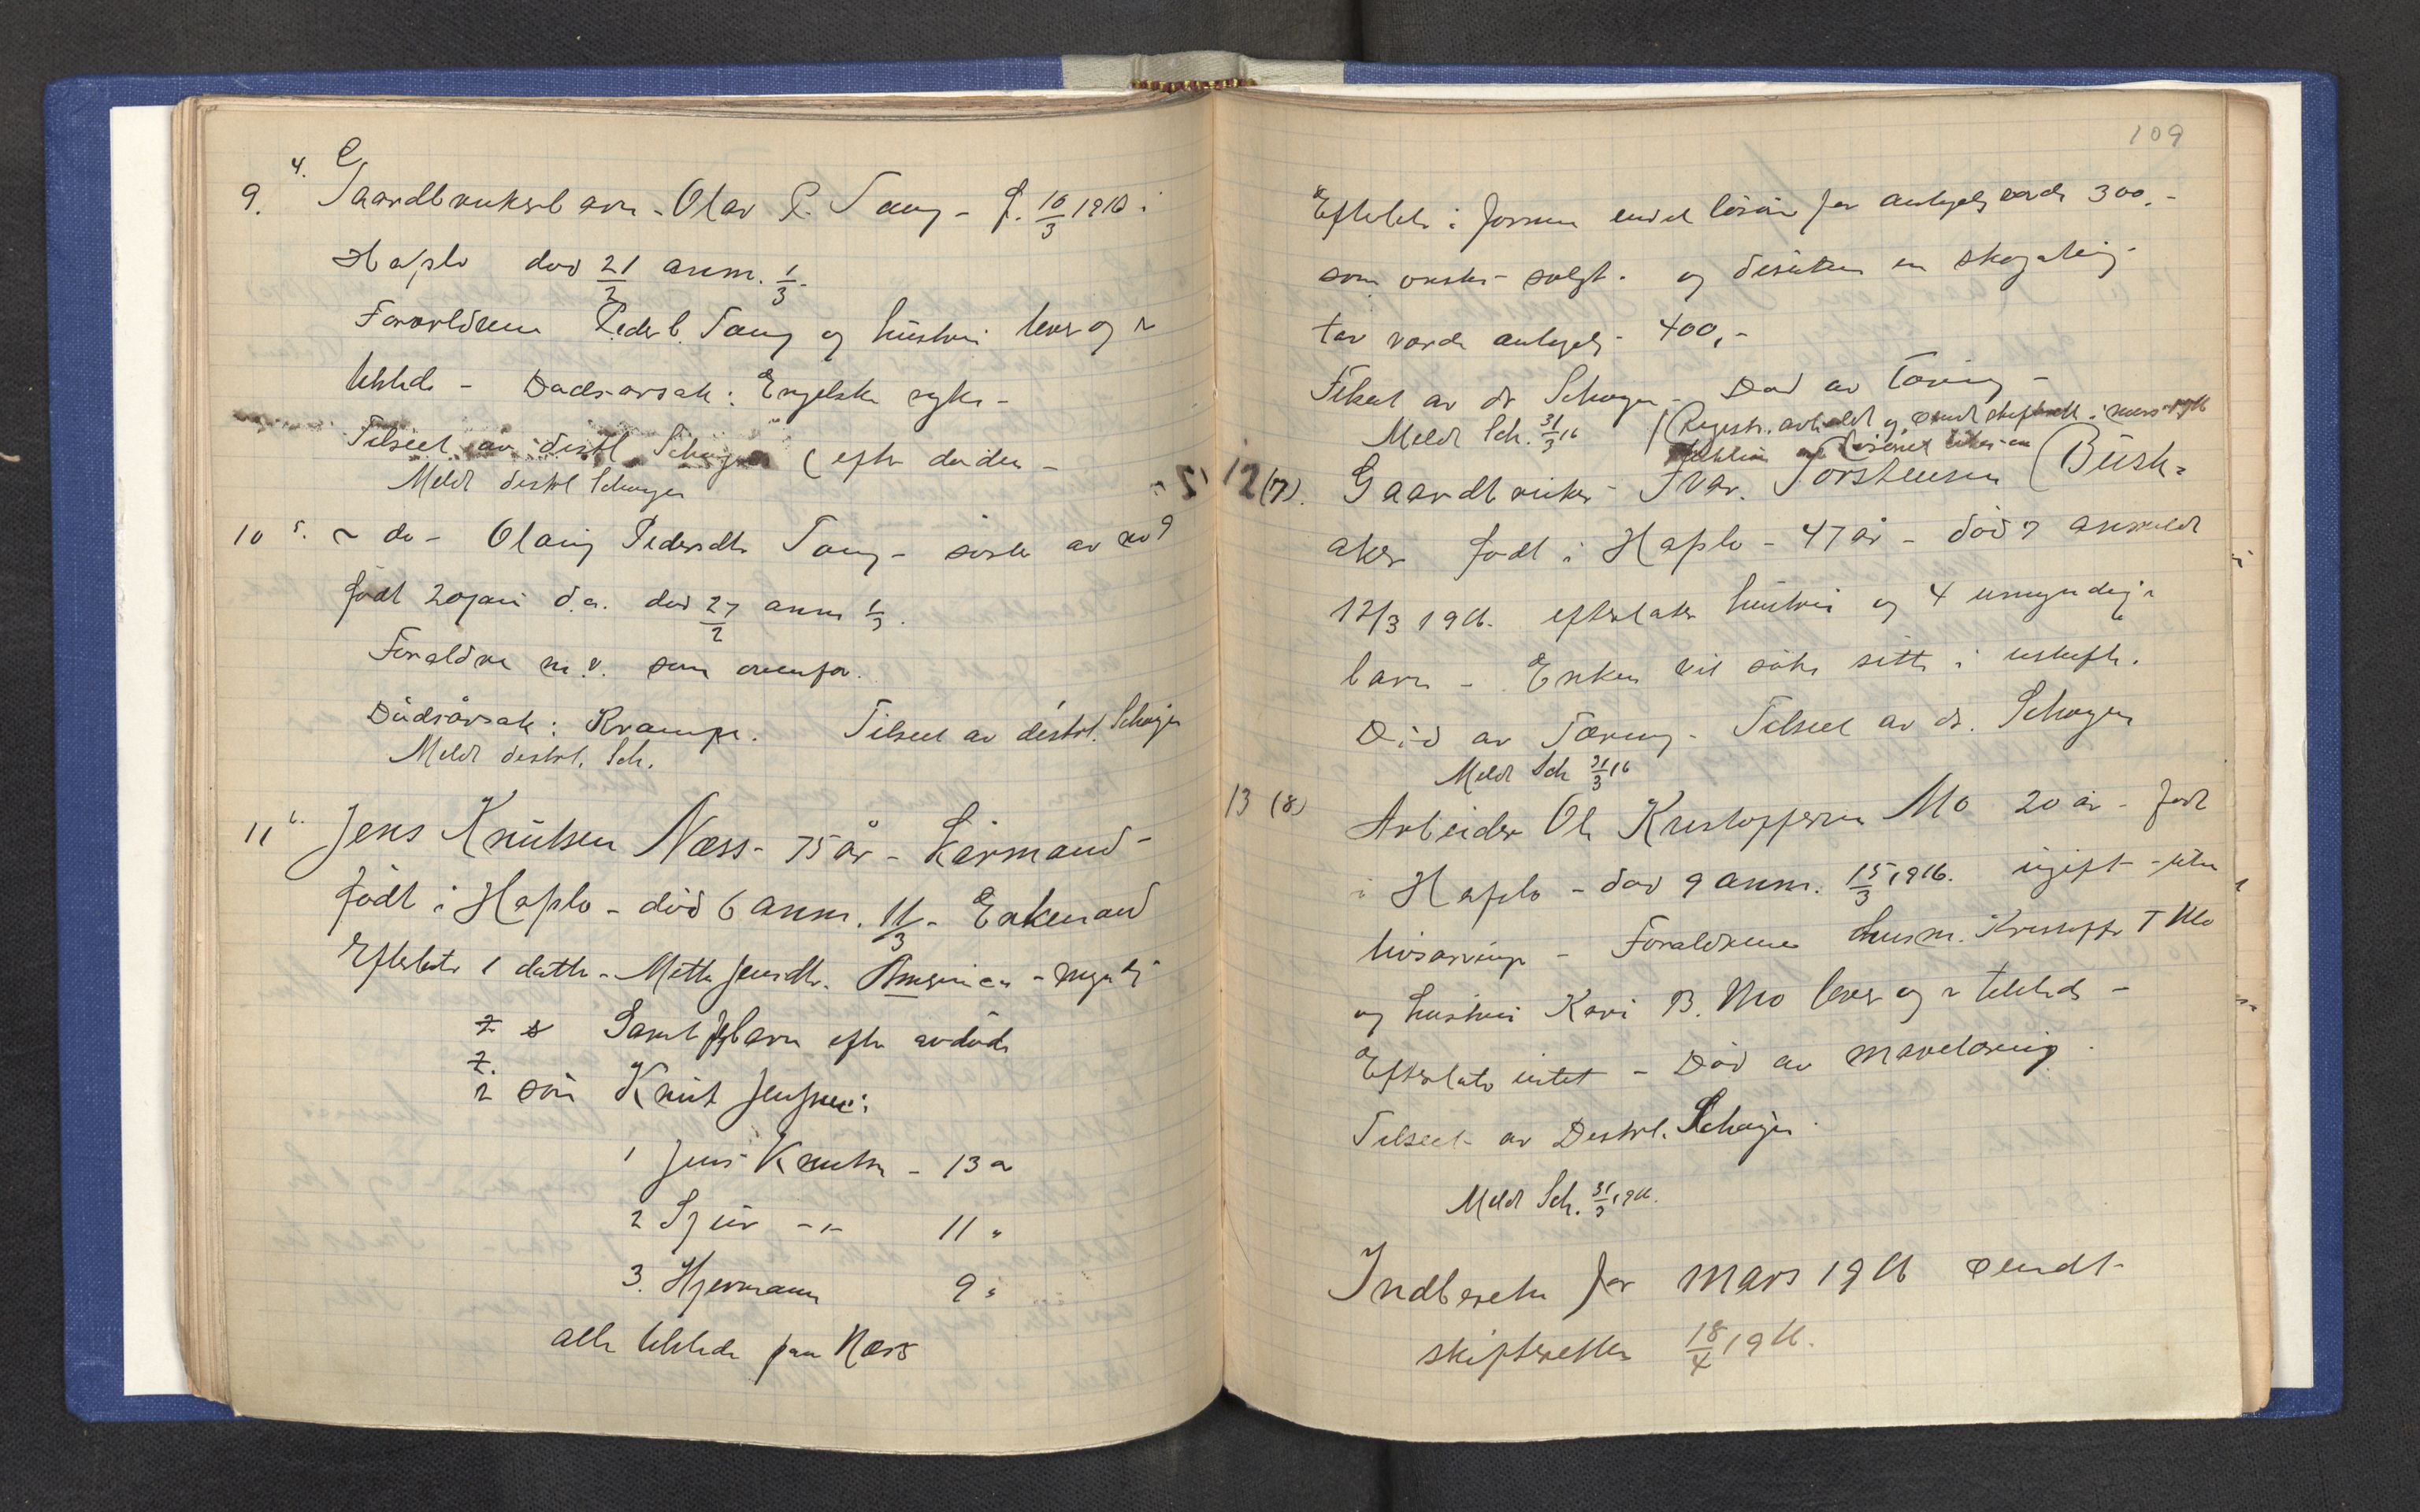 9. 4. Gaardbrukerbarn - Olav P. Tang - f. 10/3 1910 i
Hafslo død 21/2 anm. 1/3.
Forældrene Peder O. Tang og hustru lever og er
tilstede - Dødsårsak: Engelske syke -
Tilseet av distrl Schøyen (efter døden -
Meldt distrl Schøyen
10 5. ~ do - Olaug Pedersdtr Tang - søster av no 9
født 20 jan d.a. død 27/2 anm 1/3.
Forældre m.v. som ovenfor.
Dødsårsak: Krampe. Tilseet av distrl. Schøyen
Meldt distrl. Sch.
11 6. Jens Knutsen Næss - 75 år - Kårmand -
født i Hafslo - død 6 anm. 11/3 - Enkemand
Efterlater 1 datter - Mette Jensdtr. Amerika - myndig
Samt barn efter avdøde
2 søn Knut Jensen:
1 Jens Knutsen - 13 a
2 Sjur -"- 11 "
3. Hjermann 9 "
alle tilstede paa Næss
109
Efterlot i formue endel løsøre for antagelig værdi 300,-
som ønskes solgt. og desuten en skogateig
tav værdi antagelig 400,-
Tilseet av dr Schøyen - Død av Tæring -
Meldt Sch. 31/3 16 (Registr. avholdt og sendt skifteret i mars 1916
12 (7). Gaardbruker Ivar Torstensen (Busk=
aker født i Hafslo - 47 år - død 7 anmeldt
12/3 1916. efterlater hustru og 4 umyndige
barn - Enken vil søke sitte i uskifte.
Død av Tæring - Tilseet av dr. Schøyen
Meldt Sch 31/3 16
13 (8) Arbeider Ole Kristoffersen Mo 20 år - født
i Hafslo - død 9 anm. 15/3 1916. ugift - uten
livsarvinge - Forældrene husm. Kristoffer T Mo
og hustru Kari B. Mo lever og er tilstede -
Efterlater intet - Død av mavetæring.
Tilseet av Distrl. Schøyen.
Meldt Sch. 31/3 1916.
Indberetn for mars 1916 sendt
skifteretten 18/4 1916.